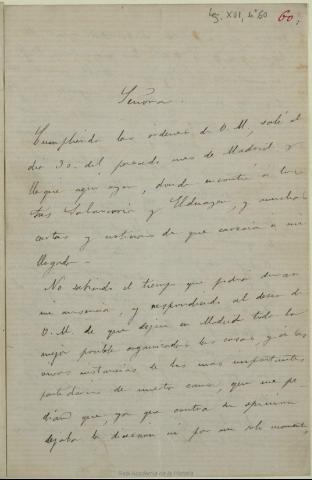 Leg. XIII, nº 60
60,
Señora.
Cumpliendo las órdenes de V.M., salí el
dia 30 del pasado mes de Madrid y
llegue aqui ayer, donde encontré a los
Sres y Elduayen, y muchas
cartas y noticias de que carecia a mi
llegada.
No sabiendo el tiempo que podrá durar
mi ausencia, y respondiendo al deseo de
V.M. de que dejára en Madrid todo lo
mejor posible organizado las cosas, y á las
instancias de los mas importantes
partidarios de nuestra causa, que me pe
dian que, ya que contra su opinion
dejaba la direccion ni por un solo momento,
Real Academia de la Historia